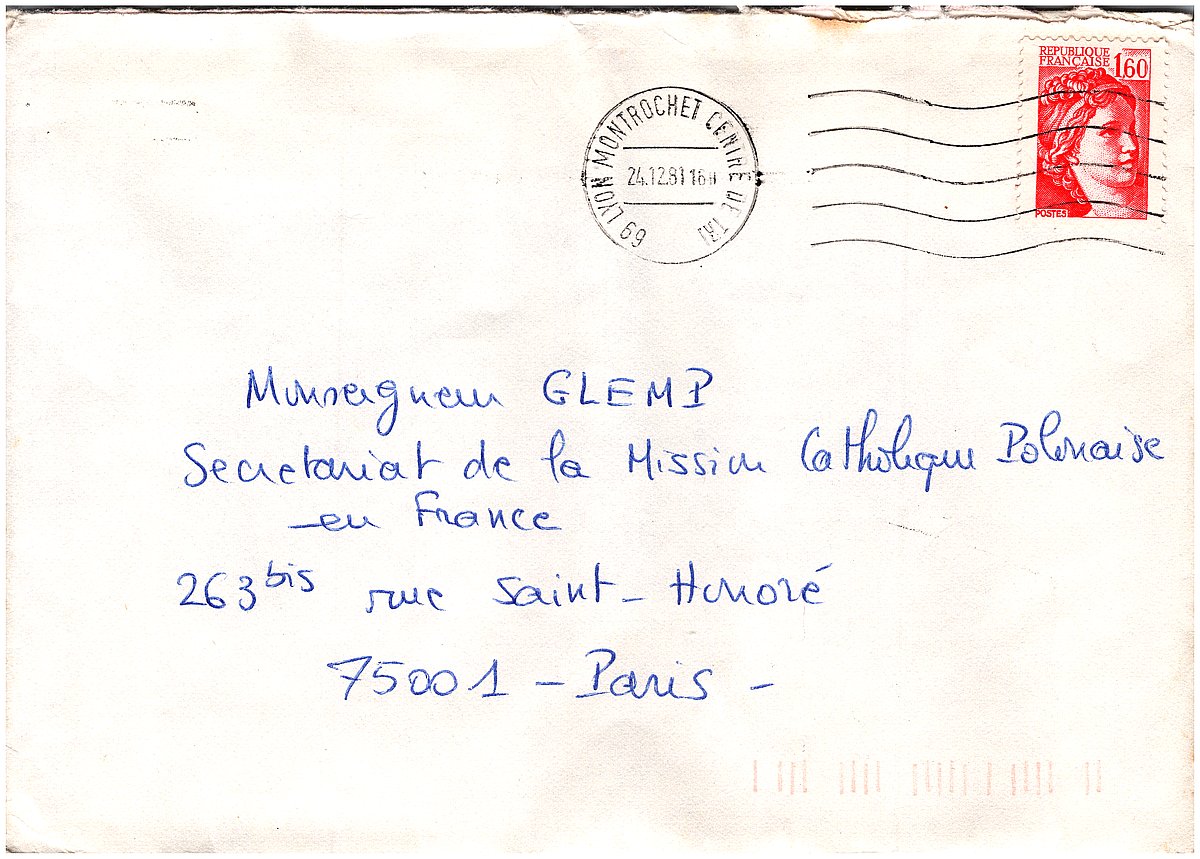 REPUBLIQUE
FRANÇAISE 1,60
POSTES
69 LYON MONTROCHET CENTRE DE TRI
24.12.81 16H
Monseigneur GLEMP
Secretariat de la Mission Catholique Polonaise
en France
263 bis rue Saint-Honoré
75001 - Paris -